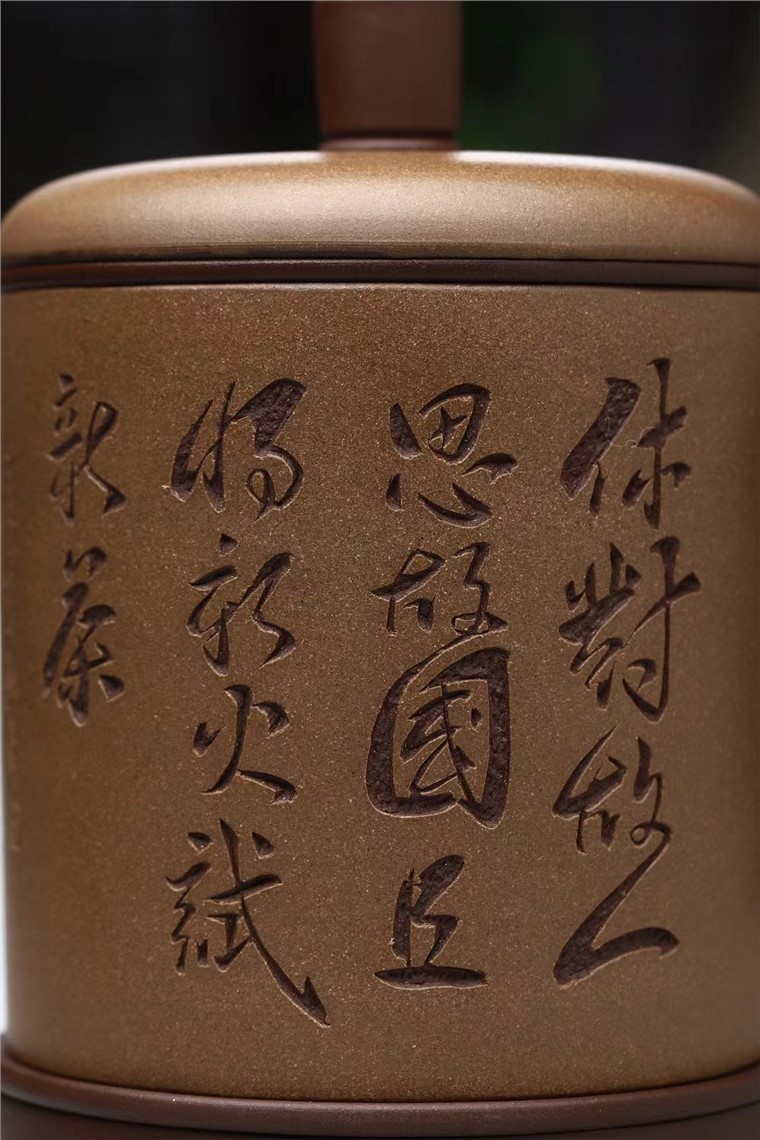 休對故人
思故國且
將新火試
新茶